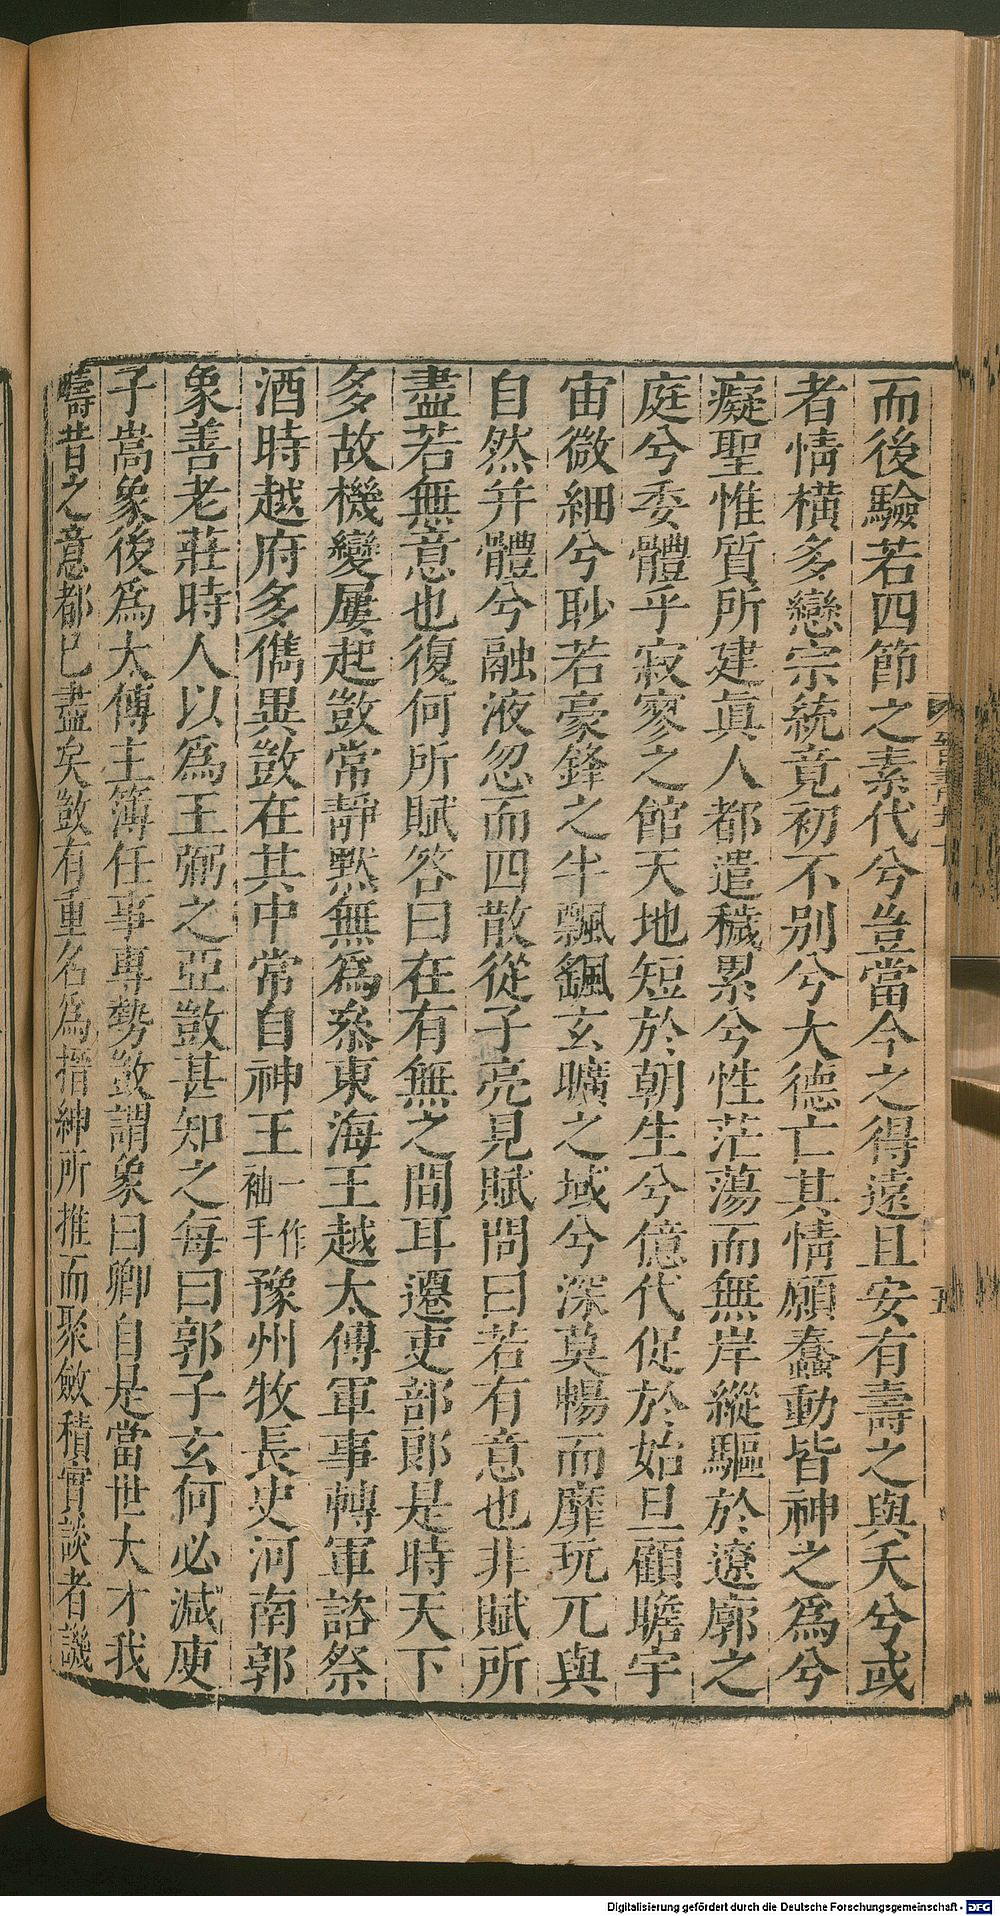 而後驗若四節之素代兮豈當今之得遠且安有壽之與夭兮或
者情橫多戀宗統竟初不別兮大德亡其情願蠢動皆神之爲兮
癡聖惟質所建眞人都遣穢累兮性茫蕩而無岸縱驅於遼廓之
庭兮委體乎寂寥之館天地短於朝生兮億代促於始旦顧瞻宇
宙微細兮眇若豪鋒之半飄颻玄曠之域兮深莫暢而靡玩兀與
自然并體兮融液忽而四散從子亮見賦問曰若有意也非賦所
盡若無意也復何所賦答曰在有無之間耳遷吏部郎是時天下
多故機變屢起敳常靜默無爲叅東海王越太傅軍事轉軍諮祭
酒時越府多儁異敳在其中常自神王一作袖手豫州牧長史河南郭
象善老莊時人以爲王弼之亞敳甚知之每曰郭子玄何必减庾
子嵩象後爲太傅主簿任事專勢敳謂象曰卿自是當世大才我
疇昔之意都已盡矣敳有重名爲搢紳所推而聚斂積實談者譏
五
Digitalisierung gefördert durch die Deutsche Forschungsgemeinschaft - DFG